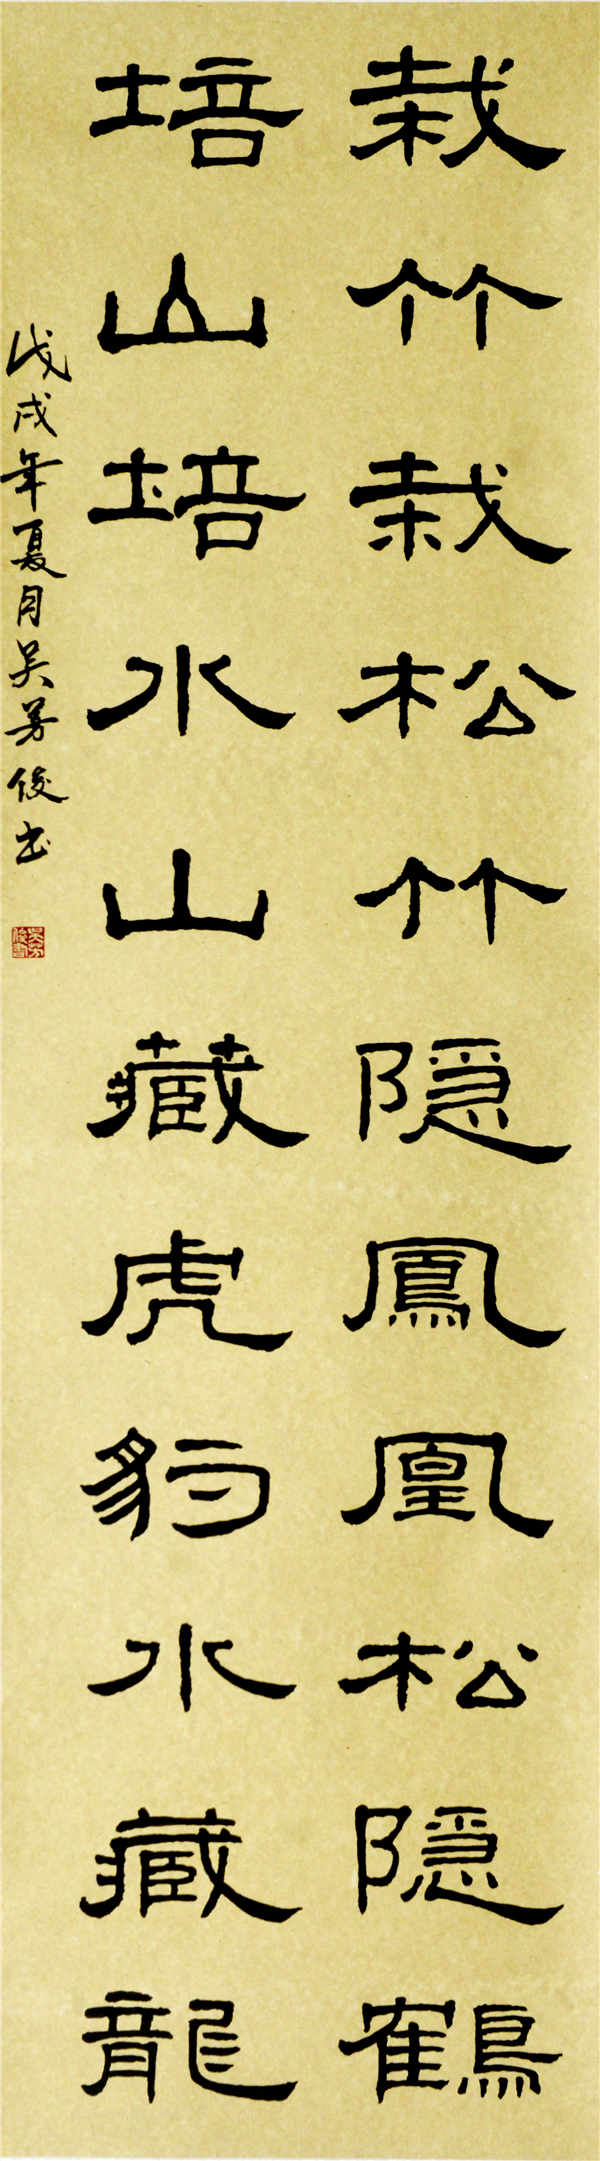 栽竹栽松竹隐鳳凰松隐鶴
培山培水山藏虎豹水藏龍
戊戌年夏月吴芳俊书